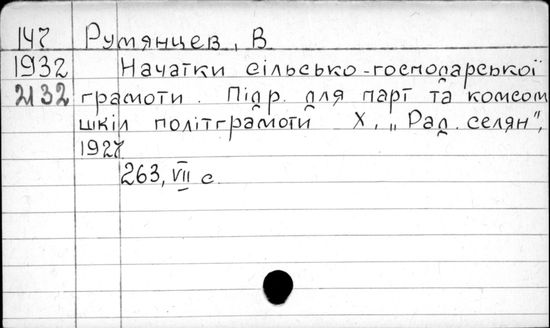 147 Румянцев, В
1932 Начатки сільсько-господарської
2132 грамоти. Підр. для парт та комсом
шкіл політграмоти Х, „Рад. селян",
1927
263, VII с.